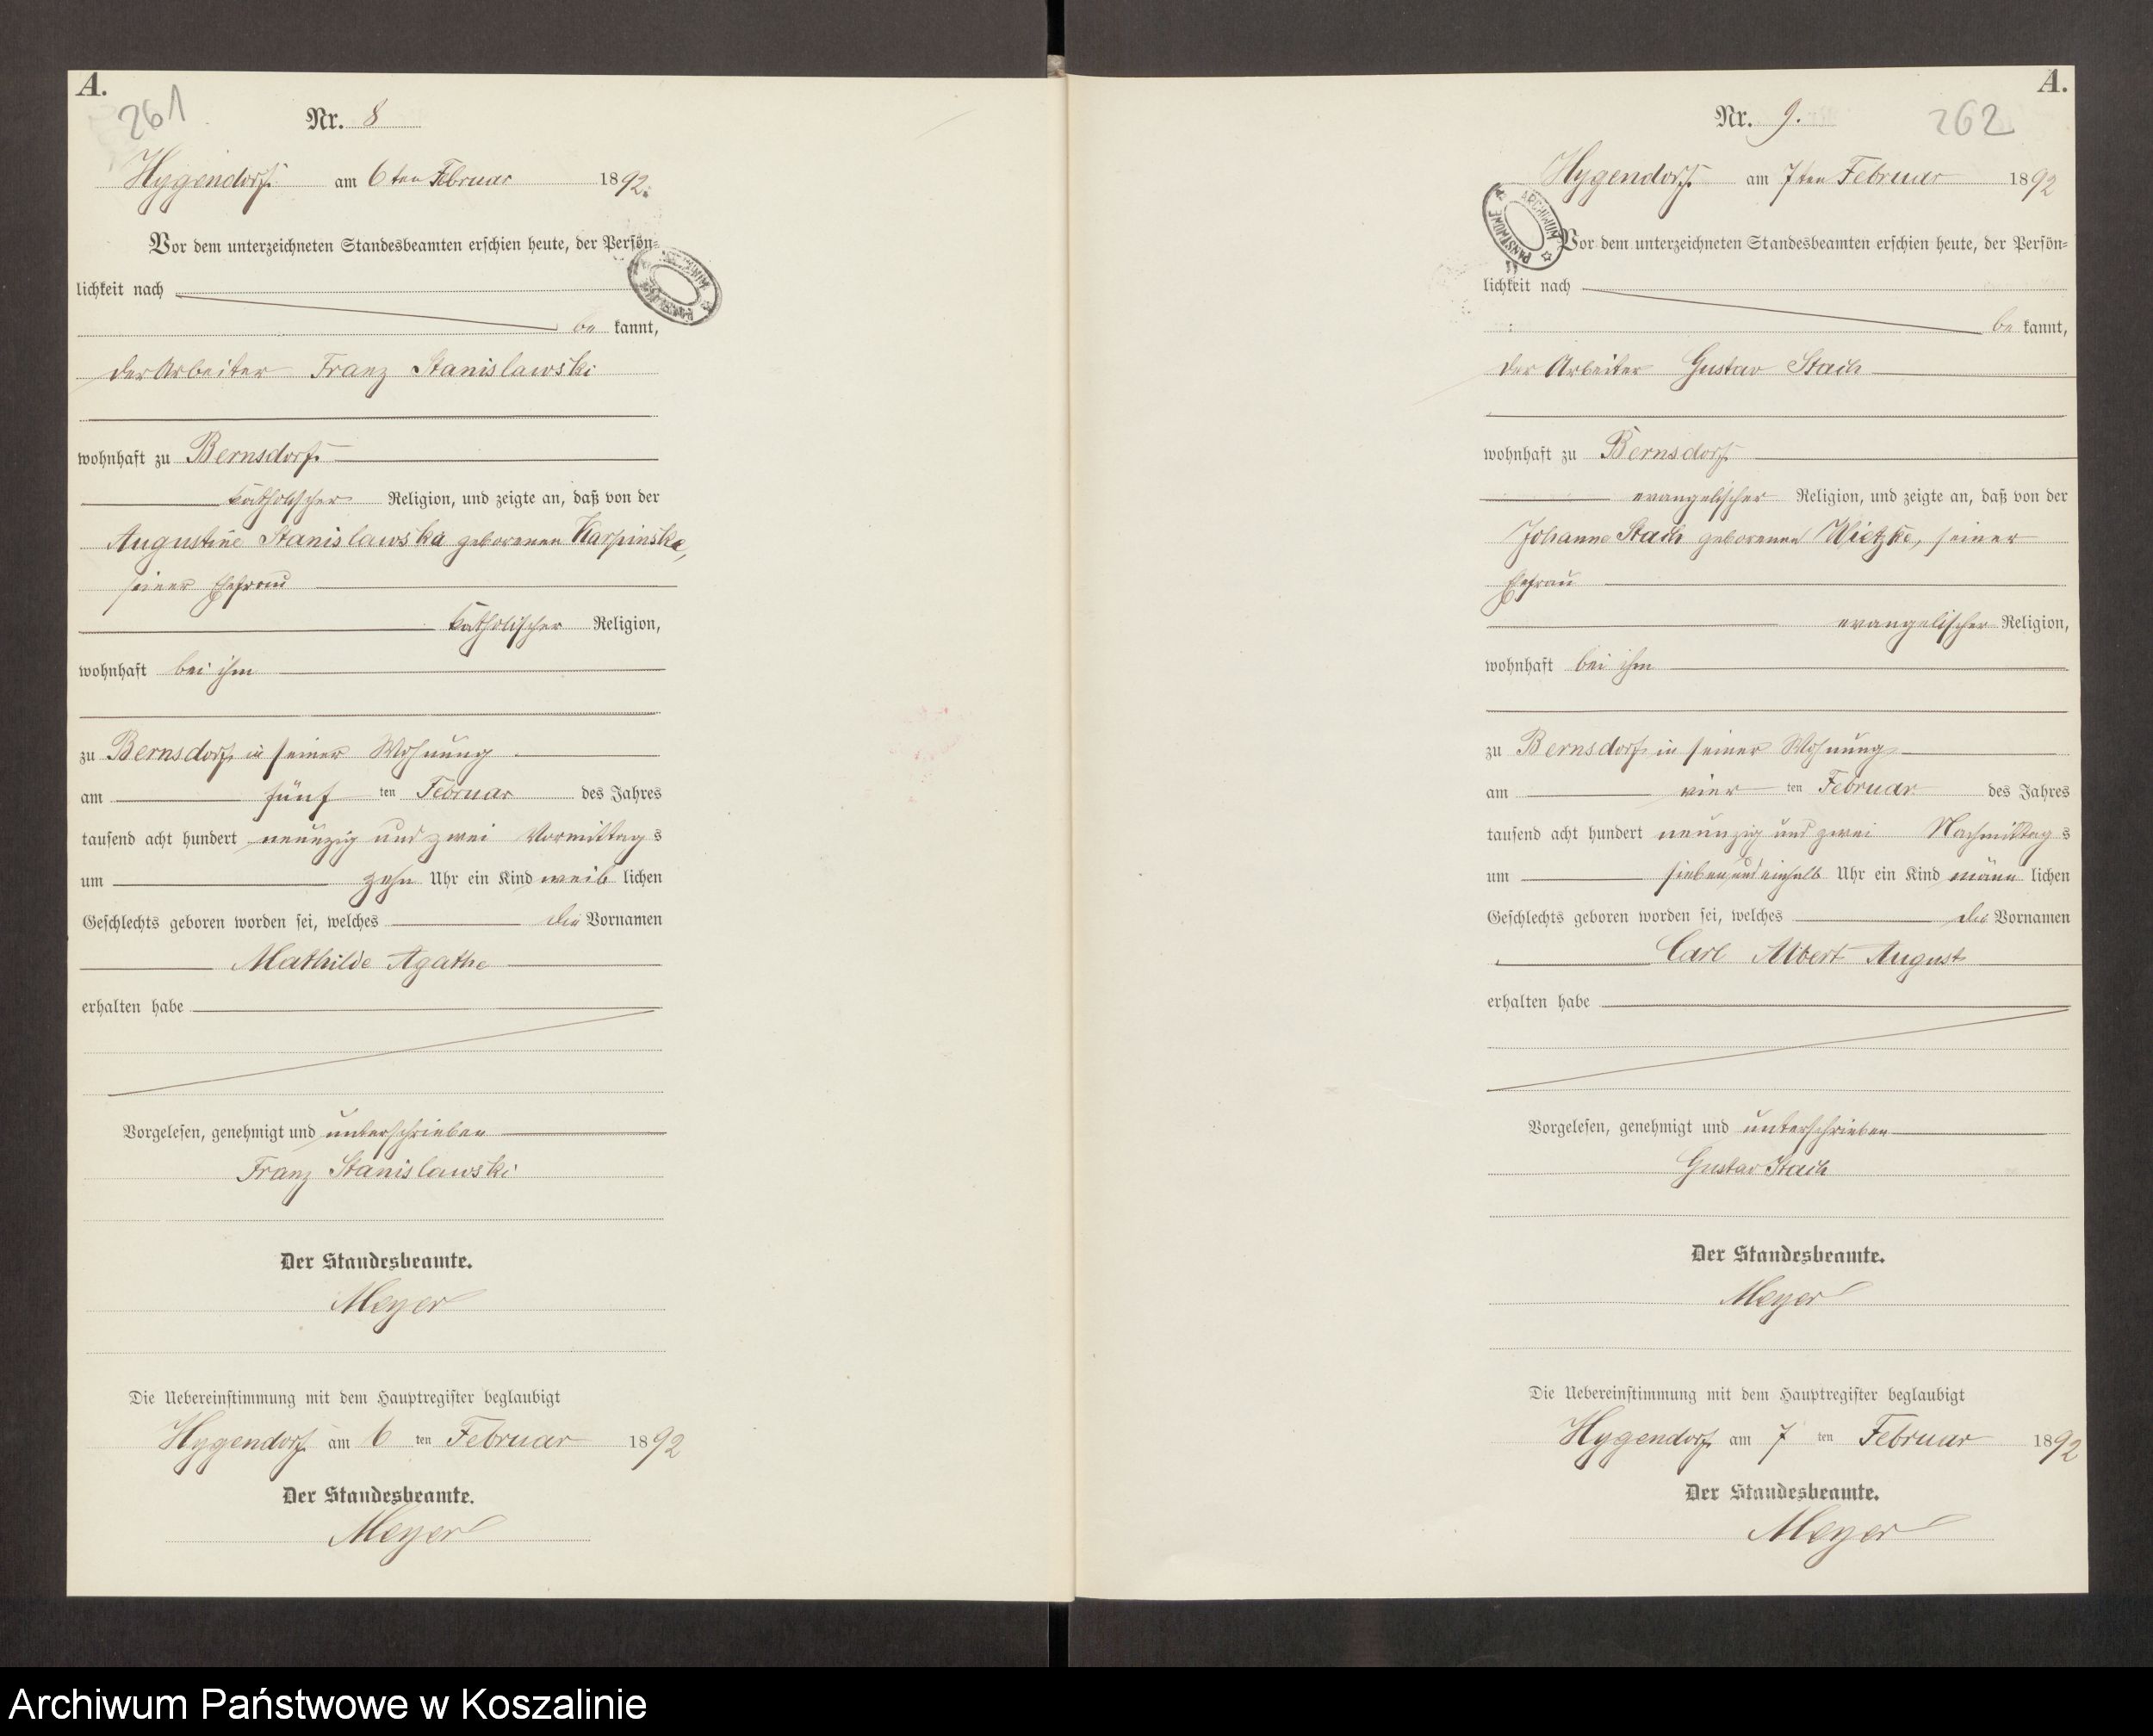 A.
261
Nr. 8
Hygendorf am 6ten Februar 1892.
Vor dem unterzeichneten Standesbeamten erschien heute, der Persön-
lichkeit nach
be kannt,
der Arbeiter Franz Stanislawski
wohnhaft zu Bernsdorf
katholischer Religion, und zeigte an, daß von der
Augustine Stanislawska geborenen Karpinska,
seiner Ehefrau
katholischer Religion,
wohnhaft bei ihm
zu Bernsdorf in seiner Wohnung
am fünf ten Februar des Jahres
tausend acht hundert neunzig und zwei Vormittag s
um zehn Uhr ein Kind weib lichen
Geschlechts geboren worden sei, welches die Vornamen
Mathilde Agathe
erhalten habe
Vorgelesen, genehmigt und unterschrieben
Franz Stanislawski
Der Standesbeamte.
Meyer
Die Uebereinstimmung mit dem Hauptregister beglaubigt
Hygendorf am 6 ten Februar 1892
Der Standesbeamte.
Meyer
A.
262
Nr. 9.
Hygendorf am 7ten Februar 1892
ARCHIWUM PAŃSTWOWE
Vor dem unterzeichneten Standesbeamten erschien heute, der Persön-
lichkeit nach
be kannt,
der Arbeiter Gustav Stach
wohnhaft zu Bernsdorf
evangelischer Religion, und zeigte an, daß von der
Johanne Stach geborenen Wietzke, seiner
Ehefrau
evangelischer Religion,
wohnhaft bei ihm
zu Bernsdorf in seiner Wohnung
am vier ten Februar des Jahres
tausend acht hundert neunzig und zwei Nachmittag s
um sieben und einhalb Uhr ein Kind männ lichen
Geschlechts geboren worden sei, welches die Vornamen
Carl Albert August
erhalten habe
Vorgelesen, genehmigt und unterschrieben
Gustav Stach
Der Standesbeamte.
Meyer
Die Uebereinstimmung mit dem Hauptregister beglaubigt
Hygendorf am 7 ten Februar 1892
Der Standesbeamte.
Meyer
Archiwum Państwowe w Koszalinie